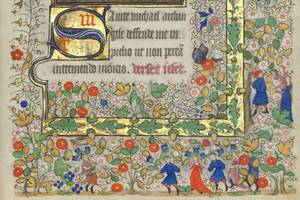 Sancte michael archan
gele deffende me in
prelio ut non pereā
in tremendo iudicio. Verset